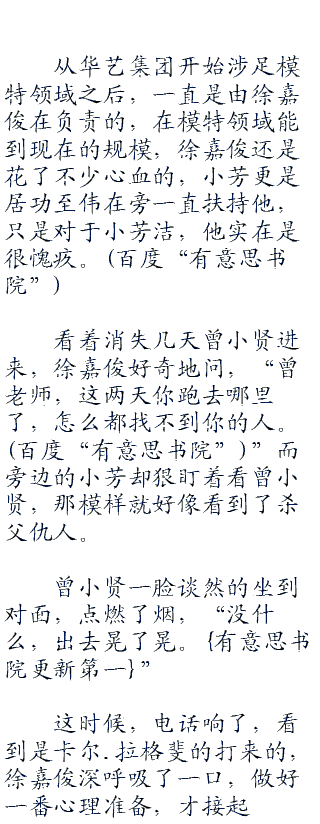 从华艺集团开始涉足模
特领域之后，一直是由徐嘉
俊在负责的，在模特领域能
到现在的规模，徐嘉俊还是
花了不少心血的，小芳更是
居功至伟在旁一直扶持他，
只是对于小芳洁，他实在是
很愧疚。(百度“有意思书
院”)
看着消失几天曾小贤进
来，徐嘉俊好奇地问，“曾
老师，这两天你跑去哪里
了，怎么都找不到你的人。
(百度“有意思书院”)”而
旁边的小芳却狠盯着看曾小
贤，那模样就好像看到了杀
父仇人。
曾小贤一脸谈然的坐到
对面，点燃了烟，“没什
么，出去晃了晃。{有意思书
院更新第一}”
这时候，电话响了，看
到是卡尔.拉格斐的打来的，
徐嘉俊深呼吸了一口，做好
一番心理准备，才接起